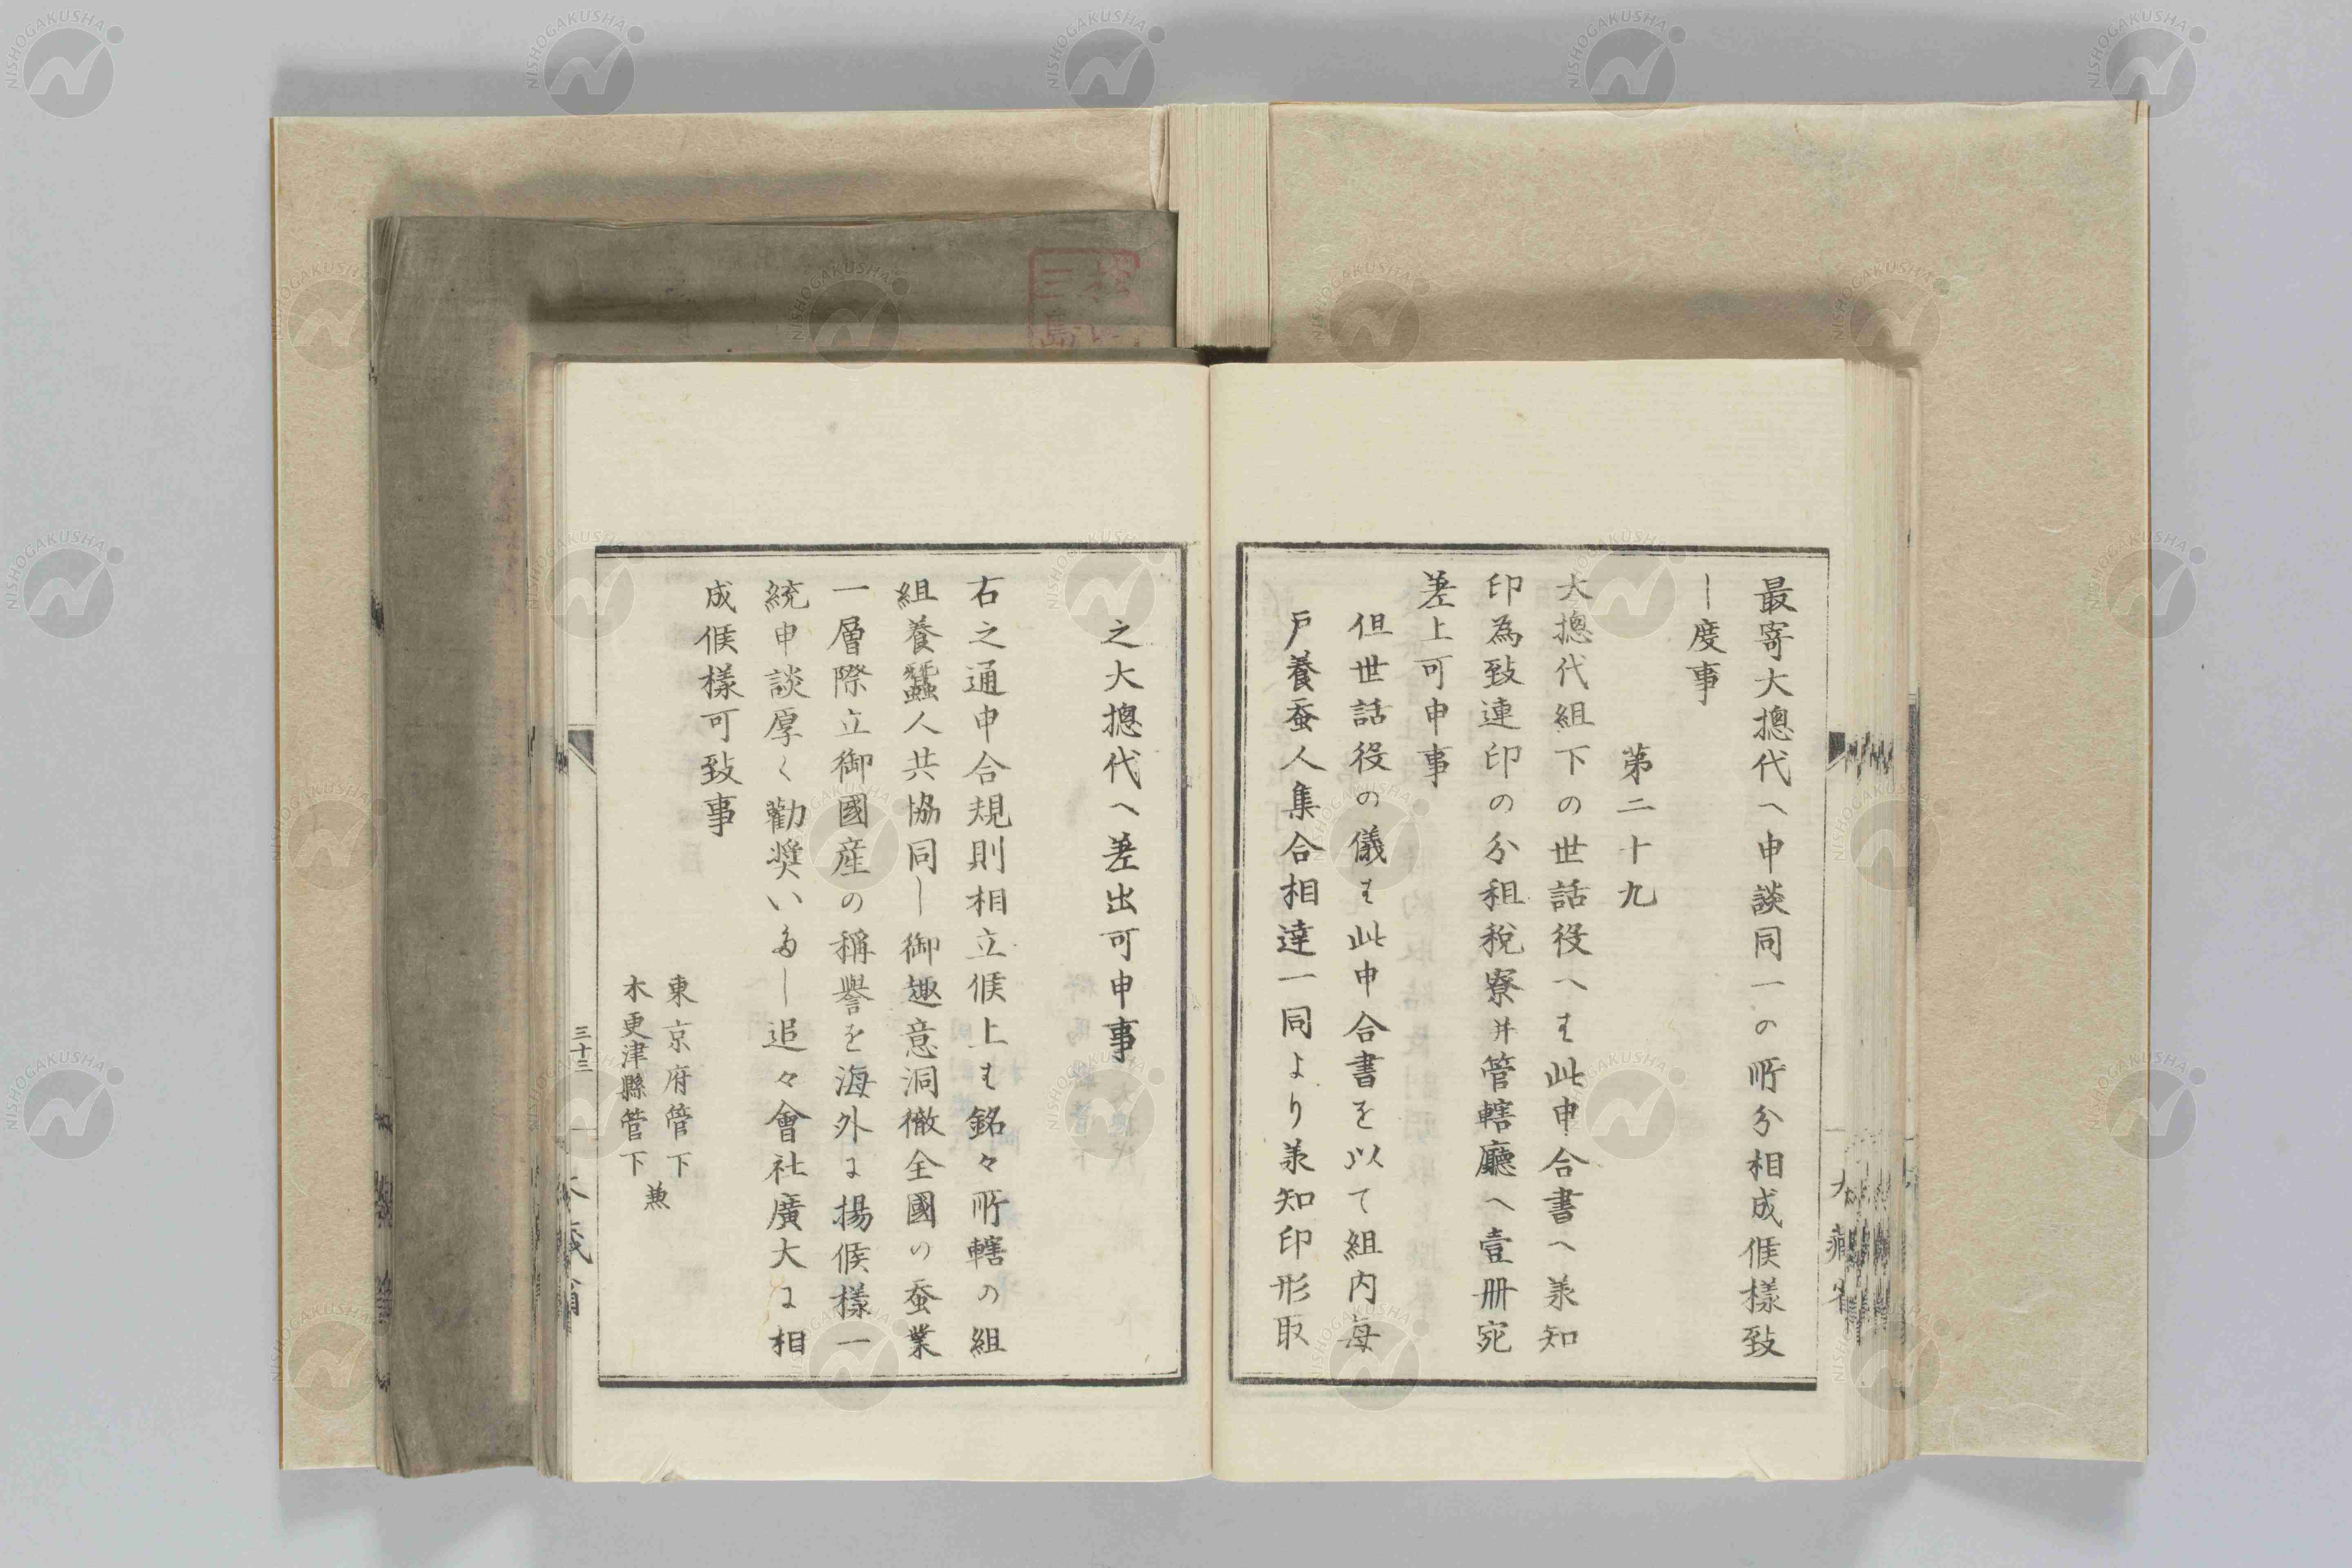 最寄大摠代へ申談同一の所分相成候様致
し度事
第二十九
大摠代組下の世話役へも此申合書へ承知
印為致連印の分租税寮并管轄廳へ壹冊宛
差上可申事
但世話役の儀も此申合書を以て組内毎
戸養蚕人集合相達一同より承知印形取
之大摠代へ差出可申事
右之通申合規則相立候上も銘々所轄の組
組養蠶人共協同し御趣意洞徹全國の蚕業
一層際立御國産の稱譽を海外に揚候様一
統申談厚く勸奨いたし追々會社廣大に相
成候様可致事
東京府管下
木更津縣管下
兼
三十三
大藏省
NISHOGAKUSHA